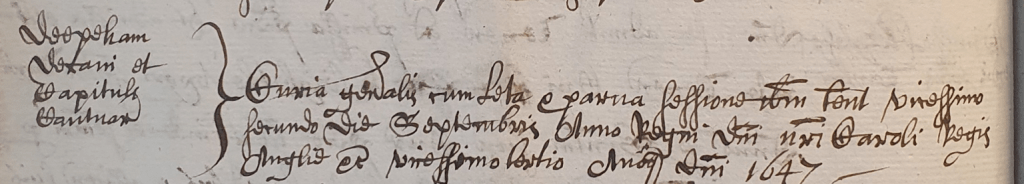 Deepeham
Decani et
Capituli
Cantuar
Curia gen'alis cum Leta & parva Sessione ib'm tent vicessimo
secundo die Septembris Anno Regni d'ni n'ri Caroli Regis
Anglie &c vicessimo tertio Annoq d'ni 1647